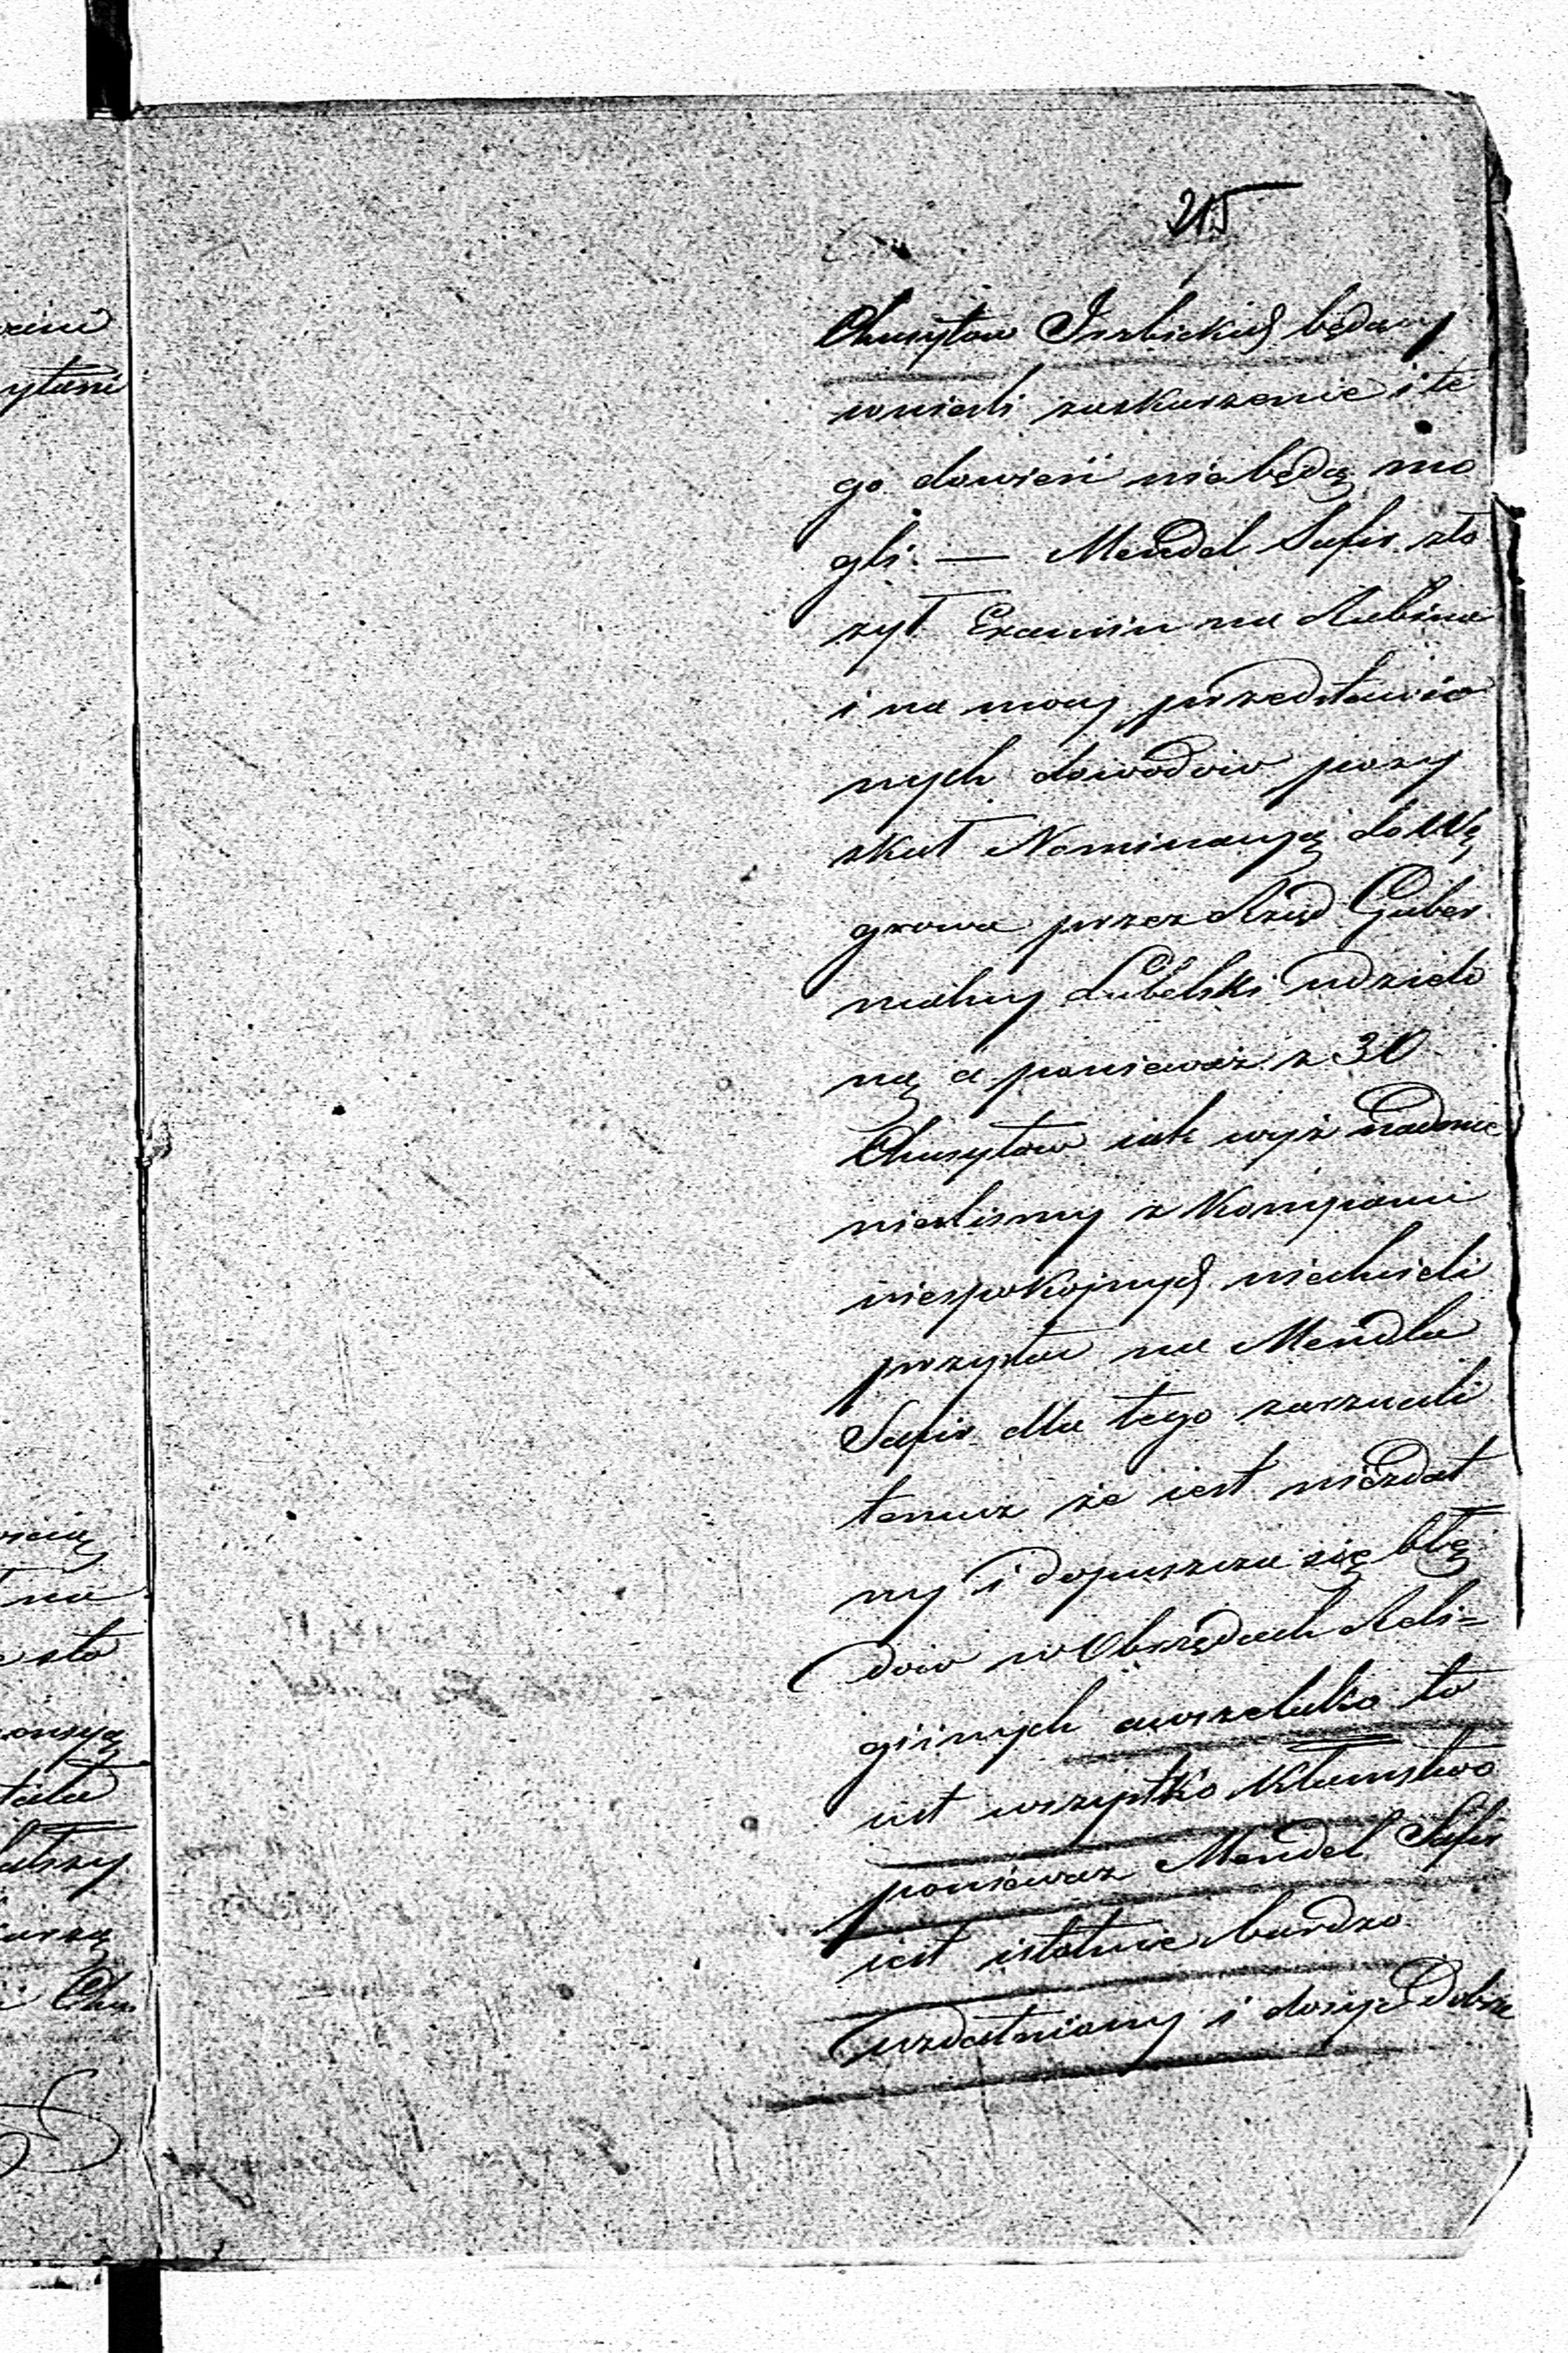 215
Chusytow Iszbickich będący
wnieśli zaskarzenie i te
go dowieść nie będą mo
gli. — Mendel Safir zło
żył Examin na Rabina
i na mocy przedstawio
nych dowodów pozy
skał Nominacyą do Wę
growa przez Rząd Guber
nialny Lubelski udzielo
ną a ponieważ z 30
Chusytow iak wyż nadmie
niliśmy z Kompanii
niespokojnych niechcieli
przystać na Mendla
Safir dla tego zarzucali
temuż że iest niezdat
ny i dopuszcza się błę
dów w Obrzędach Reli=
giinych a wszelako to
iest wszystko Kłamstwo
ponieważ Mendel Safir
iest istotnie bardzo
uzdatniony i dosyć dobrze
ytani
na
zło
Chu